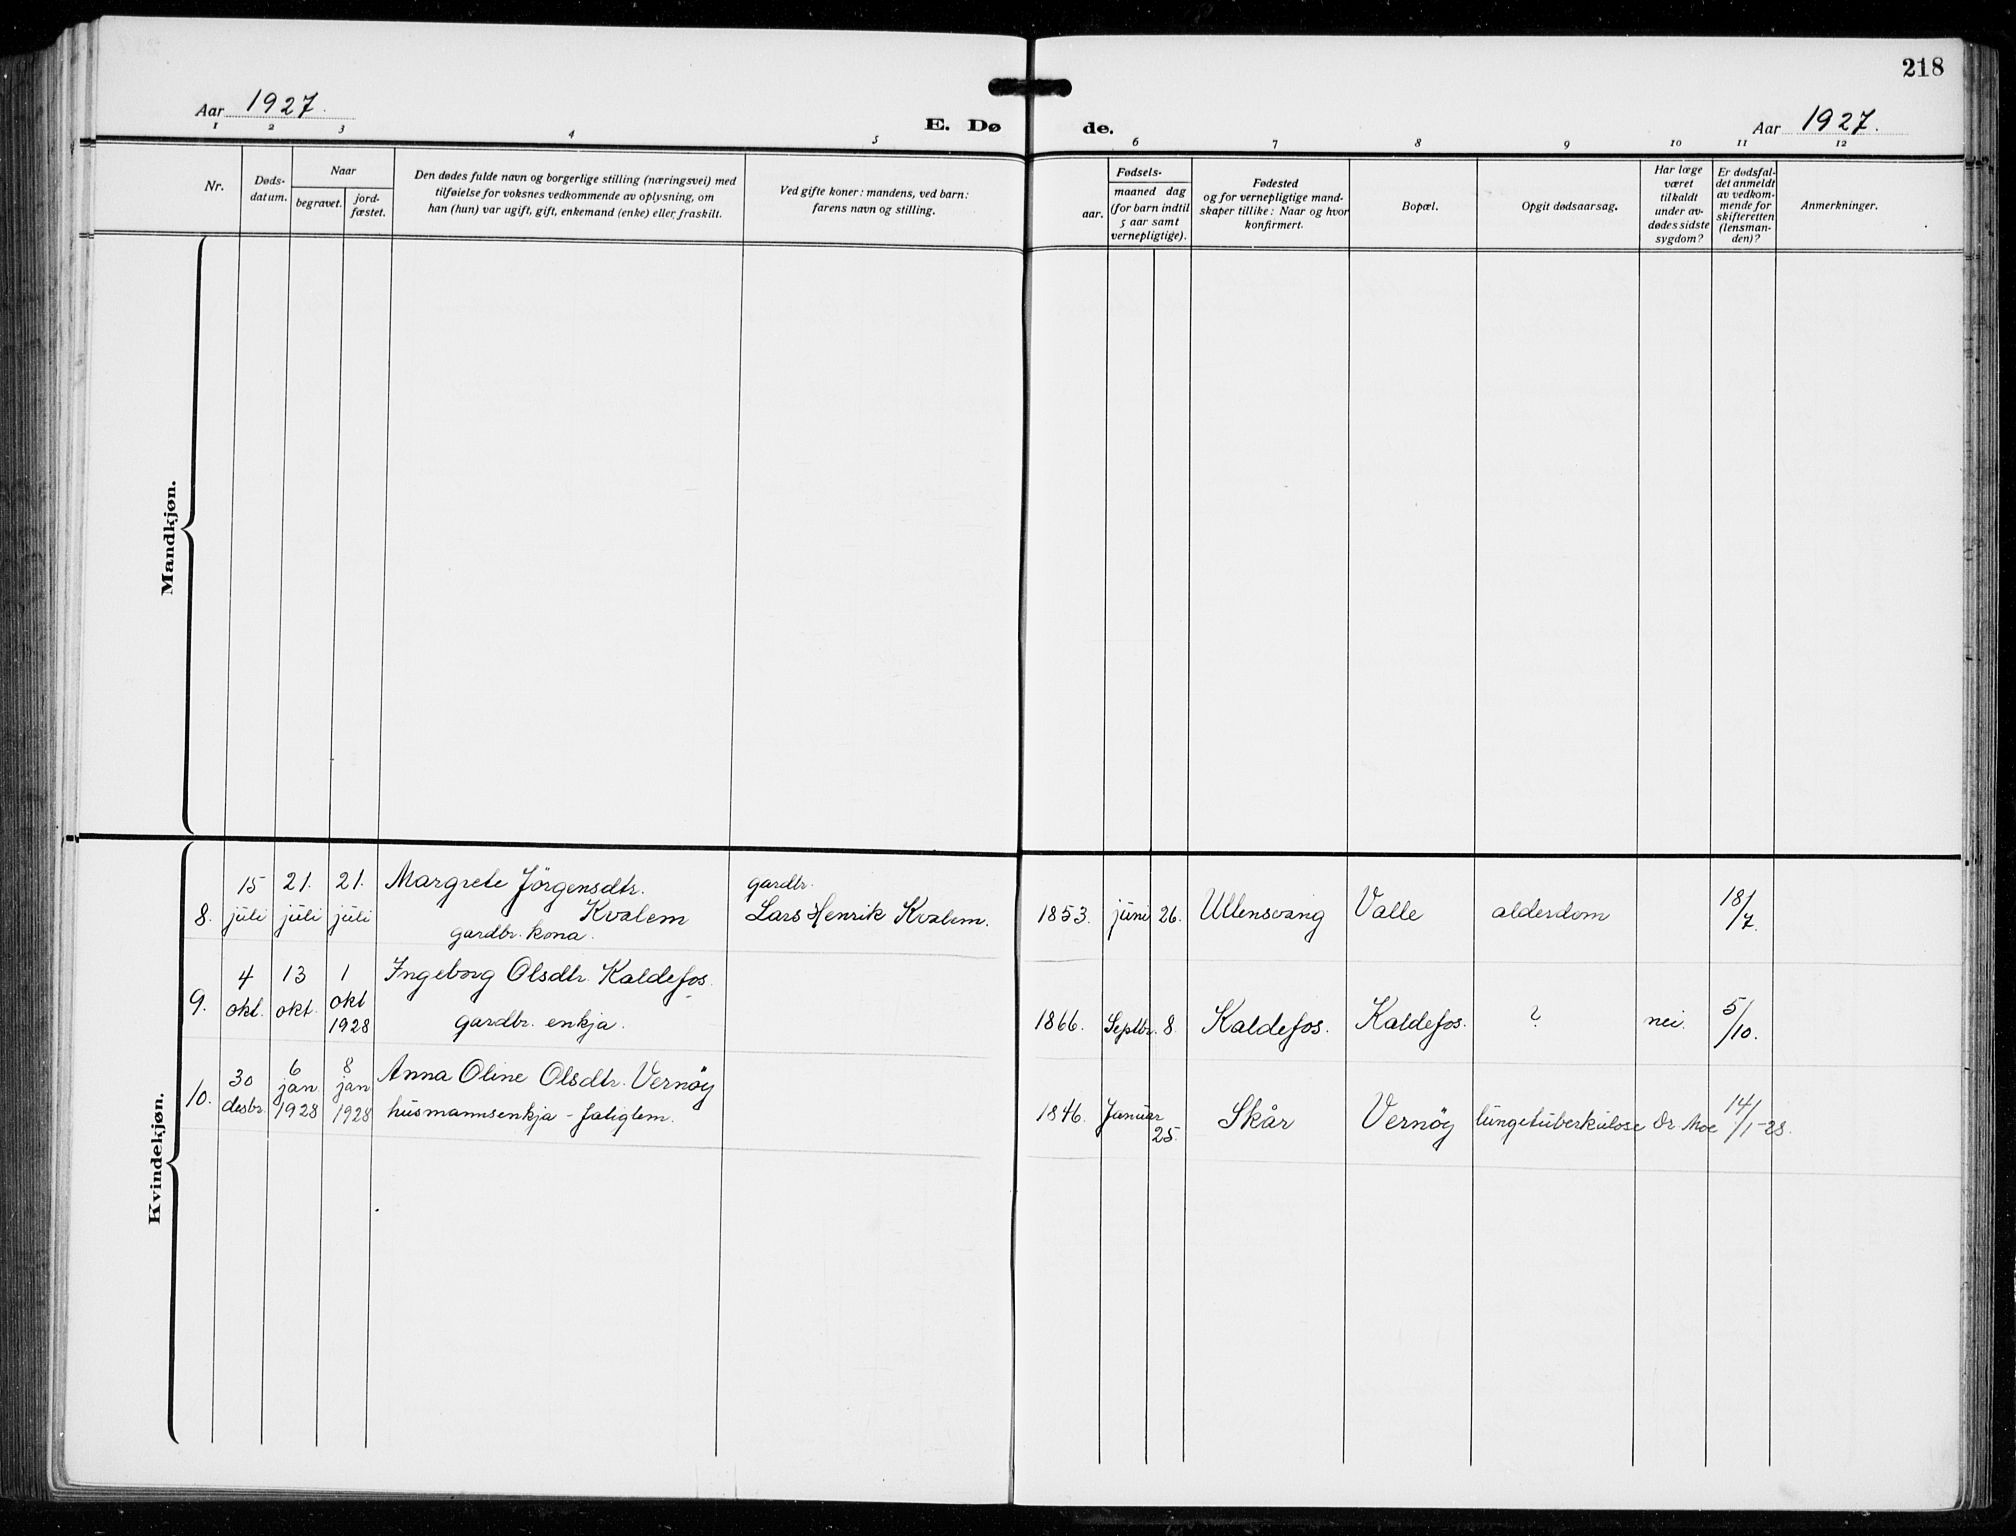 218
Aar 1927.
E. Døde.
Aar 1927.
1 2 3 4 5 6 7 8 9 10 11 12
Nr.
Døds-
datum.
Naar
begravet.
jord-
fæstet.
Den dødes fulde navn og borgerlige stilling (næringsvei) med
tilføielse for voksnes vedkommende av oplysning, om
han (hun) var ugift, gift, enkemand (enke) eller fraskilt.
Ved gifte koner: mandens, ved barn:
farens navn og stilling.
Fødsels-
aar.
maaned dag
(for barn indtil
5 aar samt
vernepligtige).
Fødested
og for vernepligtige mand-
skaper tillike: Naar og hvor
konfirmert.
Bopæl.
Opgit dødsaarsag.
Har læge
været
tilkaldt
under av-
dødes sidste
sygdom?
Er dødsfal-
det anmeldt
av vedkom-
mende for
skifteretten
(lensman-
den)?
Anmerkninger.
Mandkjøn.
Kvindekjøn.
8.
15
juli
21.
juli
21.
juli
Margrete Jörgensdtr.
Kvalem
gardbr. kona.
gardbr.
Lars Henrik Kvalem.
1853. juni 26. Ullensvang Valle alderdom
18/7.
9.
4
okt.
13
okt.
1
okt
1928
Ingeborg Olsdtr. Kaldefos.
gardbr. enkja.
1866. Septbr. 8. Kaldefos. Kaldefos. ? nei. 5/10.
10.
30
desbr.
6
jan
1928
8
jan
1928
Anna Oline Olsdtr. Vernöy
husmannsenkja - fatiglem.
1846. Januar 25. Skår Vernöy lungetuberkulose Dr. Moe 14/1-28.